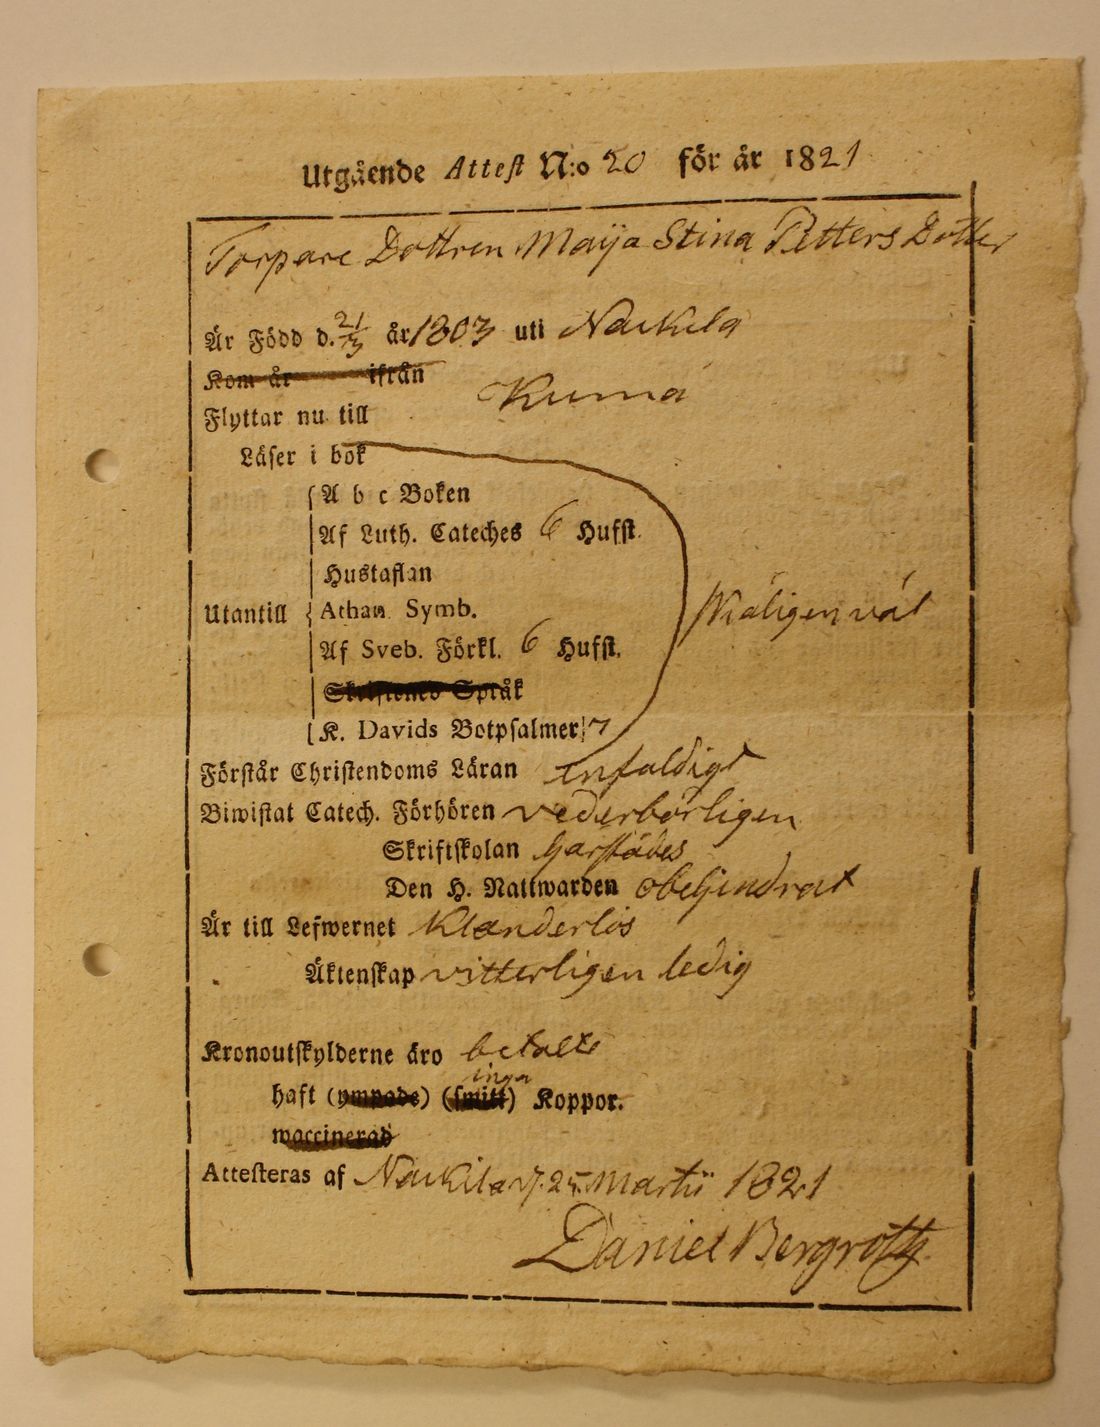 Utgående Attest N:o 20 för år 1821
Torpare Dottren Maija Stina Petters Dotter
Är Född d. 21/3 år 1803 uti Nackila
Kom år ifrån
Kumå
Flyttar nu till
Läser i bok
A b c Boken
Af Luth. Cateches 6 Hufst.
Hustaflan
Utantill Athan. Symb. Niåligen väl
Af Sveb. Förkl. 6 Hufst.
Skriftenes Språk
K. Davids Botpsalmer 7
Förstår Christendoms Läran enfaldigt
Biwistat Catech. Förhören vederbörligen
Skriftskolan härstädes
Den H. Nattwarden obehindrat
Är till Lefwernet Klanderlös
Äktenskap vitterligen ledig
Kronoutskylderne äro betalte
inga
haft (ympade) (smitt) Koppor.
waccinerad
Attesteras af Nackila d. 25 Martii 1821
Daniel Bergroth